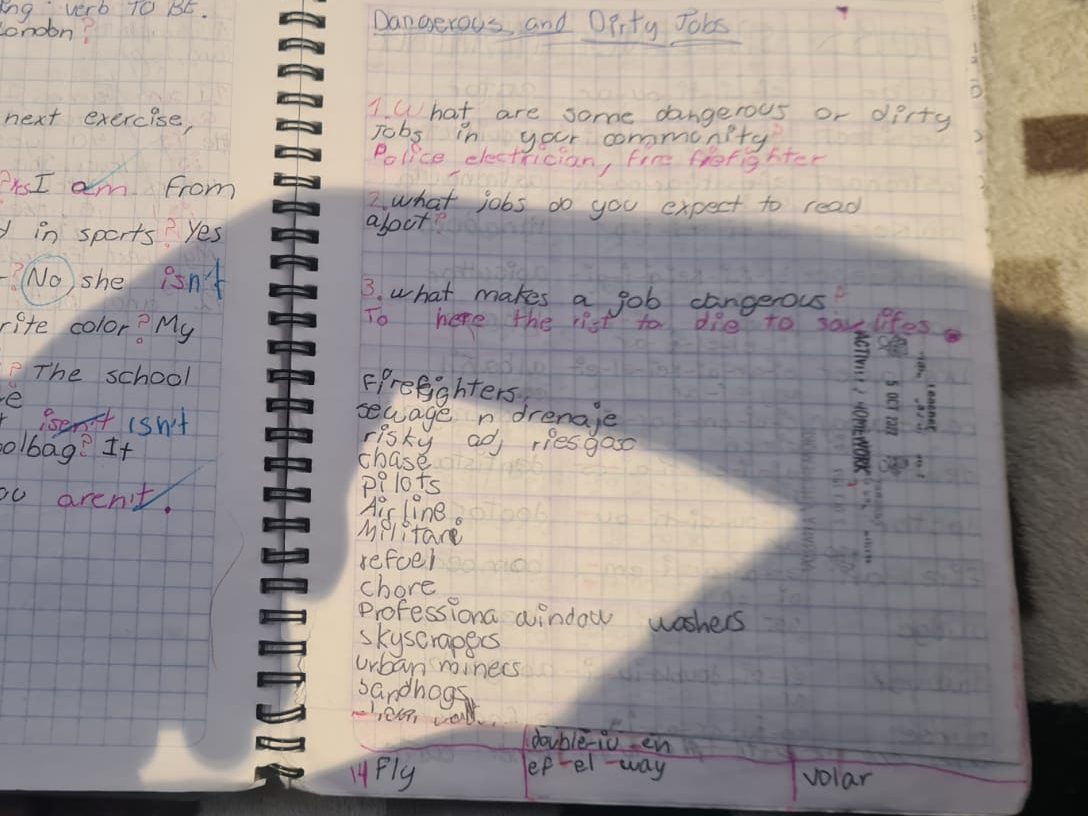 ing verb TO BE.
London?
next exercise,
?Yes I am from
in sports? Yes
? No she isn't
rite color? My
? The school
e
isen't isn't
olbag? It
ou aren't.
Dangerous and Dirty Jobs
1. What are some dangerous or dirty
Jobs in your community?
Police, electrician, fire firefighter
2. what jobs do you expect to read
about?
3. what makes a job dangerous?
To here the rist to die to save lifes
Firefighters
sewage n drenaje
risky adj riesgoso
chase
pilots
Airline
Militari
refuel
chore
Professiona window washers
skyscrapers
urban miners
sandhogs
ACTIVITY / HOMEWORK
5 OCT 2022
14 Fly
double-iu en
ef-el-way
volar